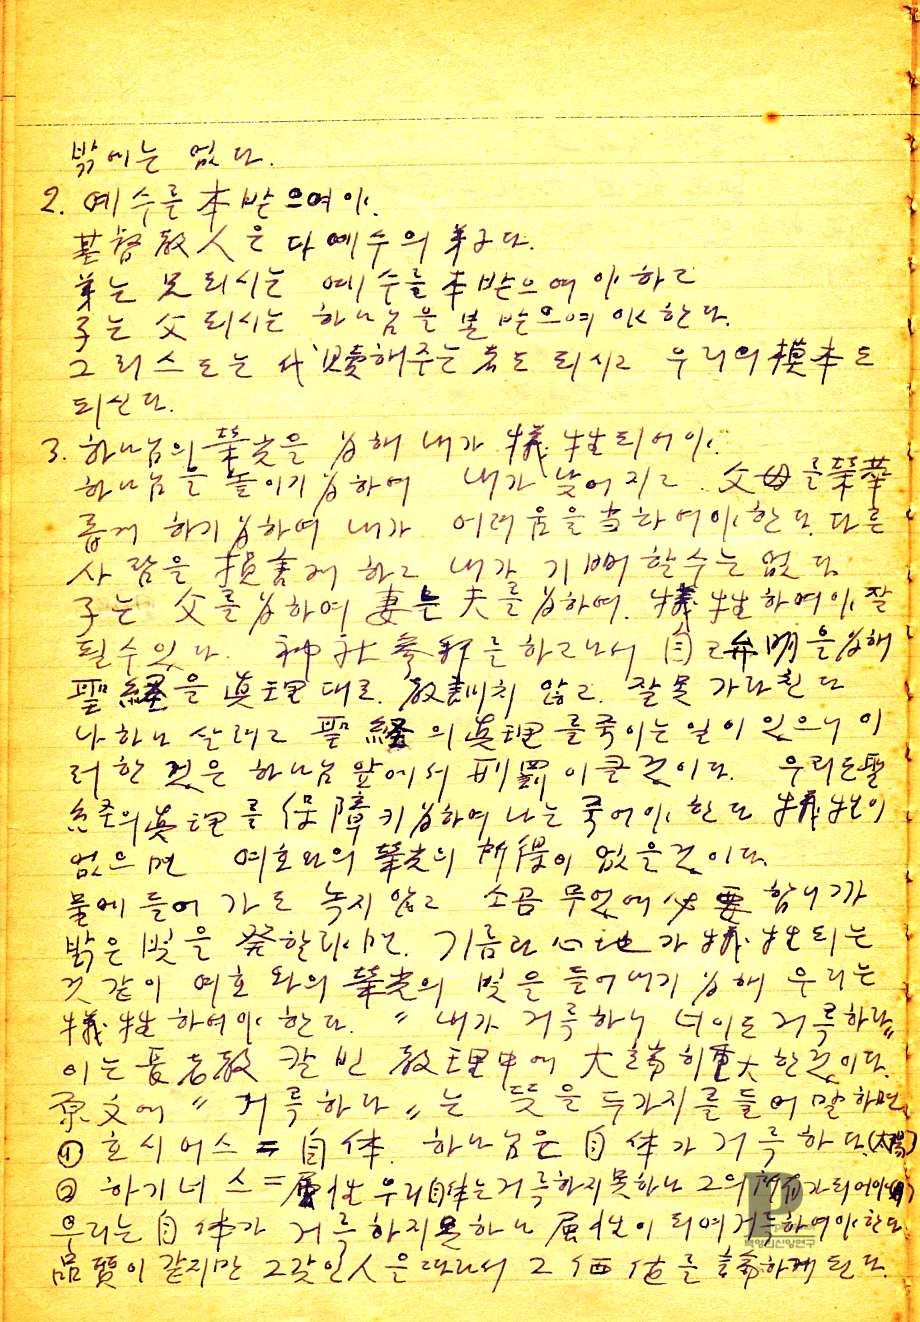 밖에는 없다.
2. 예수를 本받으여야.
基督敎人은 다 예수의 弟子다.
弟는 兄되시는 예수를 本받으여야 하고
子는 父되시는 하나님을 본받으여야 한다.
그리스도는 代贖해주는 者도 되시고 우리의 模本도
되신다.
3. 하나님의 榮光을 爲해 내가 犧牲되어야.
하나님을 높이기 爲하여 내가 낮어지고. 父母를 榮華
롭게 하기 爲하여 내가 어려움을 当하여야 한다. 다른
사람을 損害케 하고 내가 기뻐할 수는 없다.
子는 父를 爲하여 妻는 夫를 爲하여. 犧牲하여야 잘
될 수 있다. 神社參拜를 하고나서 自己弁明을 爲해
聖經을 眞理대로 敎訓치 않고. 잘못 가라친다
나 하나 살래고 聖経의 眞理를 죽이는 일이 있으니 이
러한 것은 하나님 앞에서 刑罰이 큰 것이다. 우리도 聖
経의 眞理를 保障키 爲하여 나는 죽어야 한다 犧牲이
없으면 여호와의 榮光의 所得이 없을 것이다.
물에 들어가도 녹지 않고 소곰 무엇에 必要합니가
밝은 빛을 発할라면. 기름과 心地가 犧牲되는
것 같이 여호와의 榮光의 빛을 들어내기 爲해 우리는
犧牲하여야 한다. "내가 거륵하니 너이도 거륵하라"
이는 長老敎 칼빈 敎理中에 大端히 重大한 것이다.
原文에 "거륵하다"는 뜻을 두가지를 들어 말하면
① 호시어스 = 自体. 하나님은 自体가 거륵하다.(太陽)
② 하기너스 = 属性 우리 自体는 거륵하지 못하나 그의 所有가 되어야
우리는 自体가 거륵하지 못하나 属性이 되여 거륵하여야 한다
品質이 같지만 그 갖인 人을 따라서 그 価値를 論하게 된다.